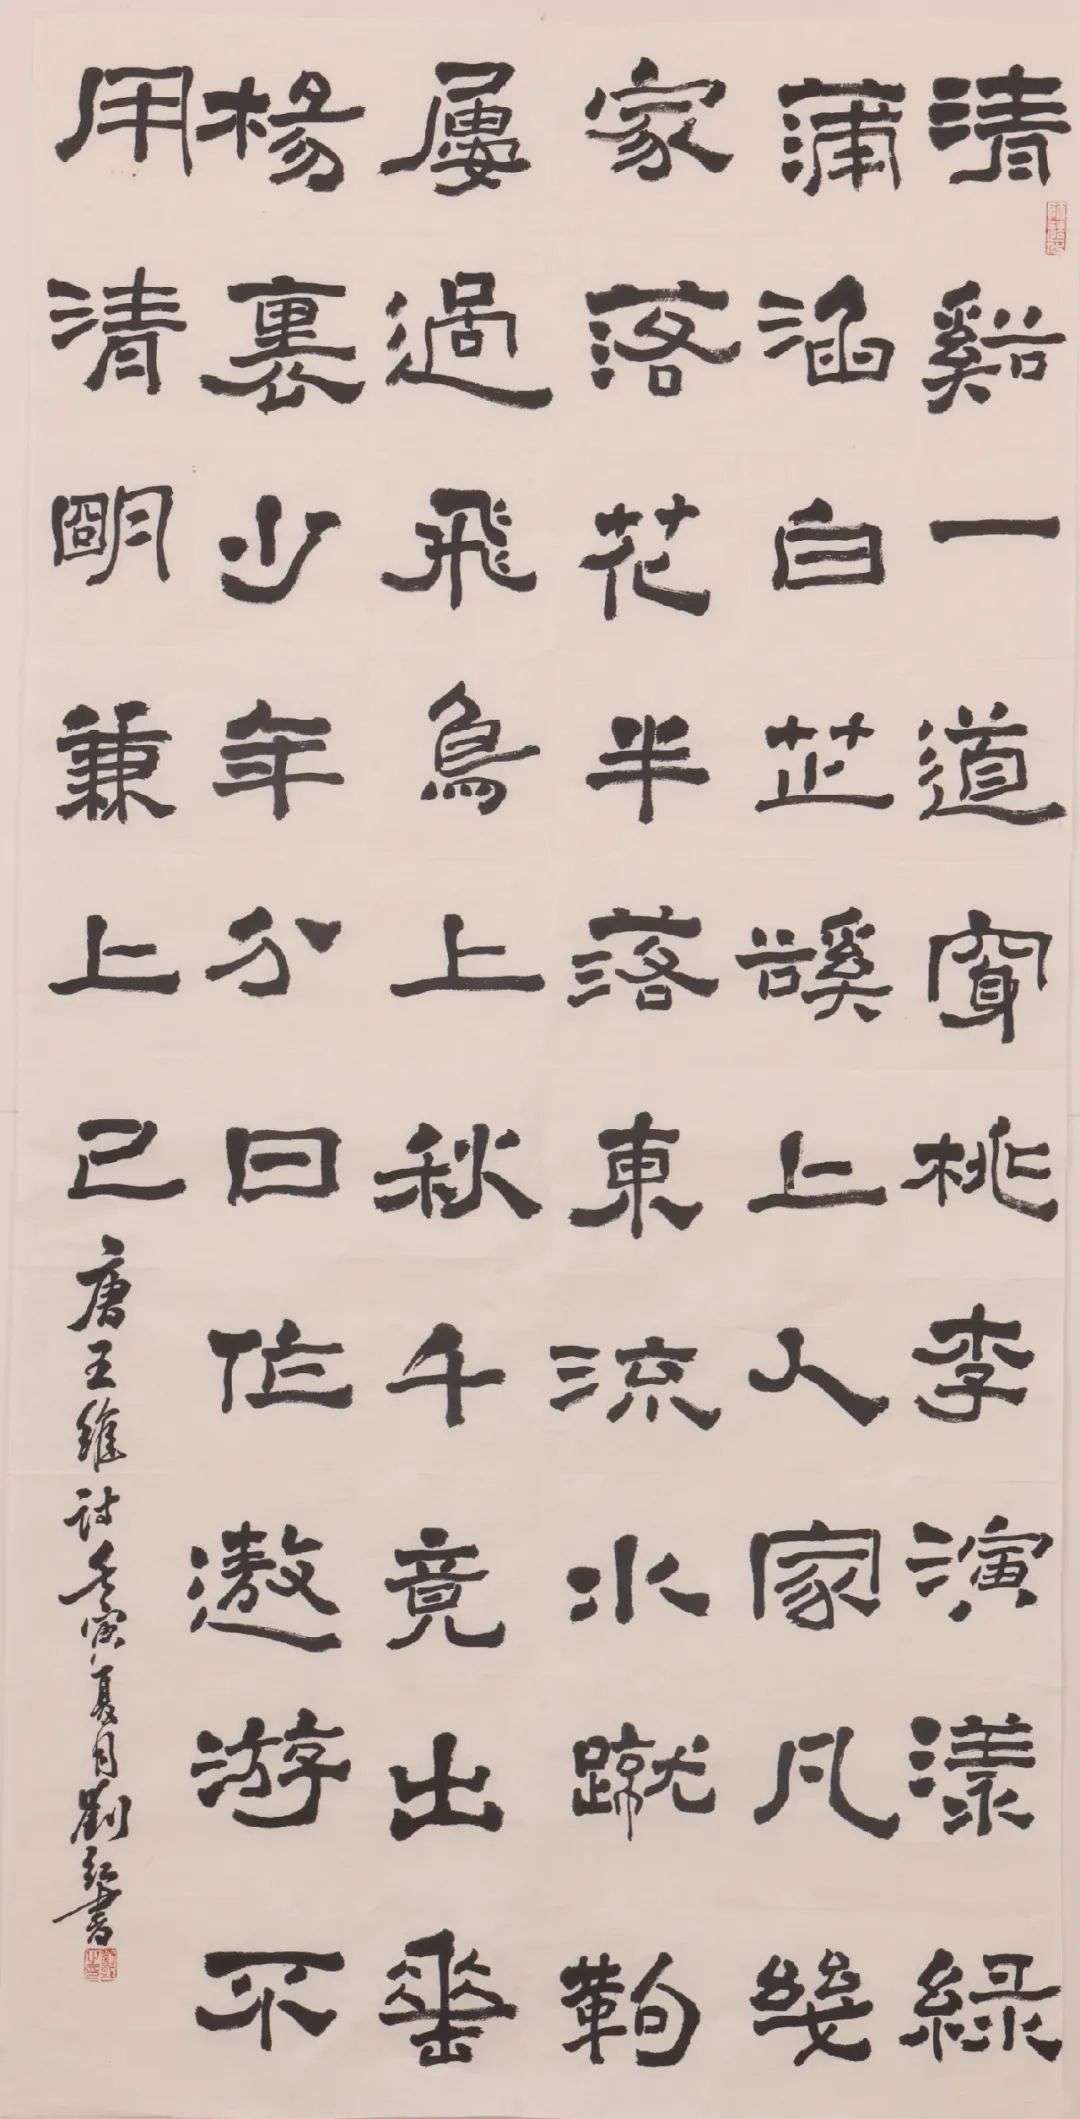 清谿一道穿桃李演漾綠
蒲涵白芷谿上人家凡幾
家落花半落東流水蹴鞠
屢過飛鳥上秋千竟出垂
楊裏少年分日作遨游不
用清朙兼上巳
唐王維詩壬寅夏月劉紅書